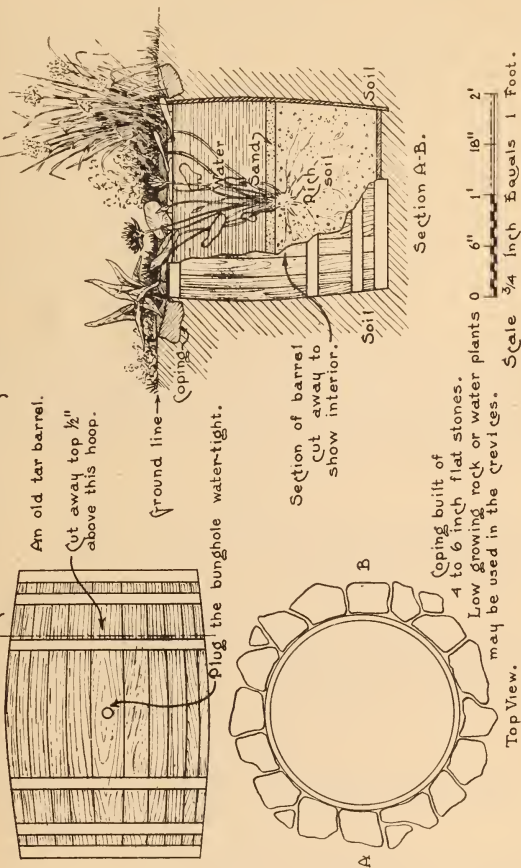 An old tar barrel.
Cut away top ½"
above this hoop.
Plug the bunghole water-tight.
Ground line
Coping
Water
Sand
Rich
soil
Soil
Soil
Section of barrel
cut away to
show interior.
Section A-B.
A
B
Coping built of
4 to 6 inch flat stones.
Low growing rock or water plants
may be used in the crevices.
Top View.
0 6" 1' 18" 2'
Scale ¾ Inch Equals 1 Foot.